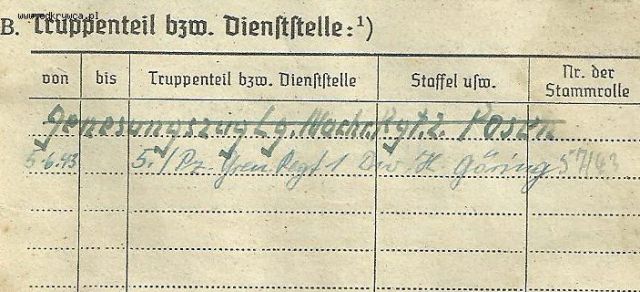 www.odkrywca.pl
B. Truppenteil bzw. Dienststelle:¹)
von bis Truppenteil bzw. Dienststelle Staffel usw. Nr. der Stammrolle
Genesungszug Lg. Nachr. Rgt. 2. Posen
5.6.43 5./Pz Gren Regt 1 Div H Göring 57/43